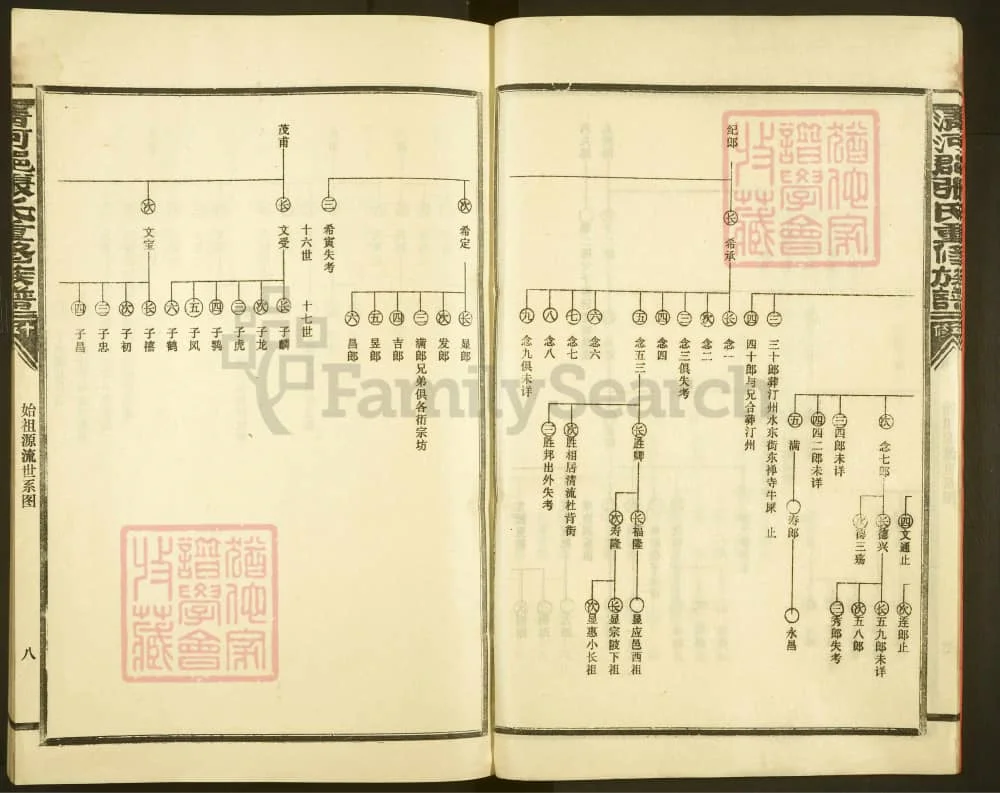 清河郡张氏重修族谱
纪郎
长 希承
三 三十郎葬汀州水东街东禅寺牛屎 止
四 四十郎与兄合葬汀州
长 念一
次 念二
三 念三俱失考
四 念四
五 念五三
六 念六
七 念七
八 念八
九 念九俱未详
次 念七郎
三 三西郎未详
四 四二郎未详
五 满
寿郎
永昌
四 文通止
长 德兴
次 连郎止
长 五九郎未详
次 五八郎
三 秀郎失考
长 胜卿
次 胜相居清流杜肯街
三 胜邦出外失考
长 福隆
次 寿隆
显应邑西祖
长 显宗陂下祖
次 显惠小长祖
次 希定
三 希寅失考
长 显郎
次 发郎
三 满郎兄弟俱各衍宗坊
四 吉郎
五 昱郎
六 昌郎
十六世
十七世
茂甫
长 文受
次 文宝
长 子麟
次 子龙
三 子虎
四 子鹗
五 子凤
六 子鹤
长 子禧
次 子初
三 子忠
四 子昌
始祖源流世系图
八
FamilySearch
犹他家谱学会收藏
犹他家谱学会收藏